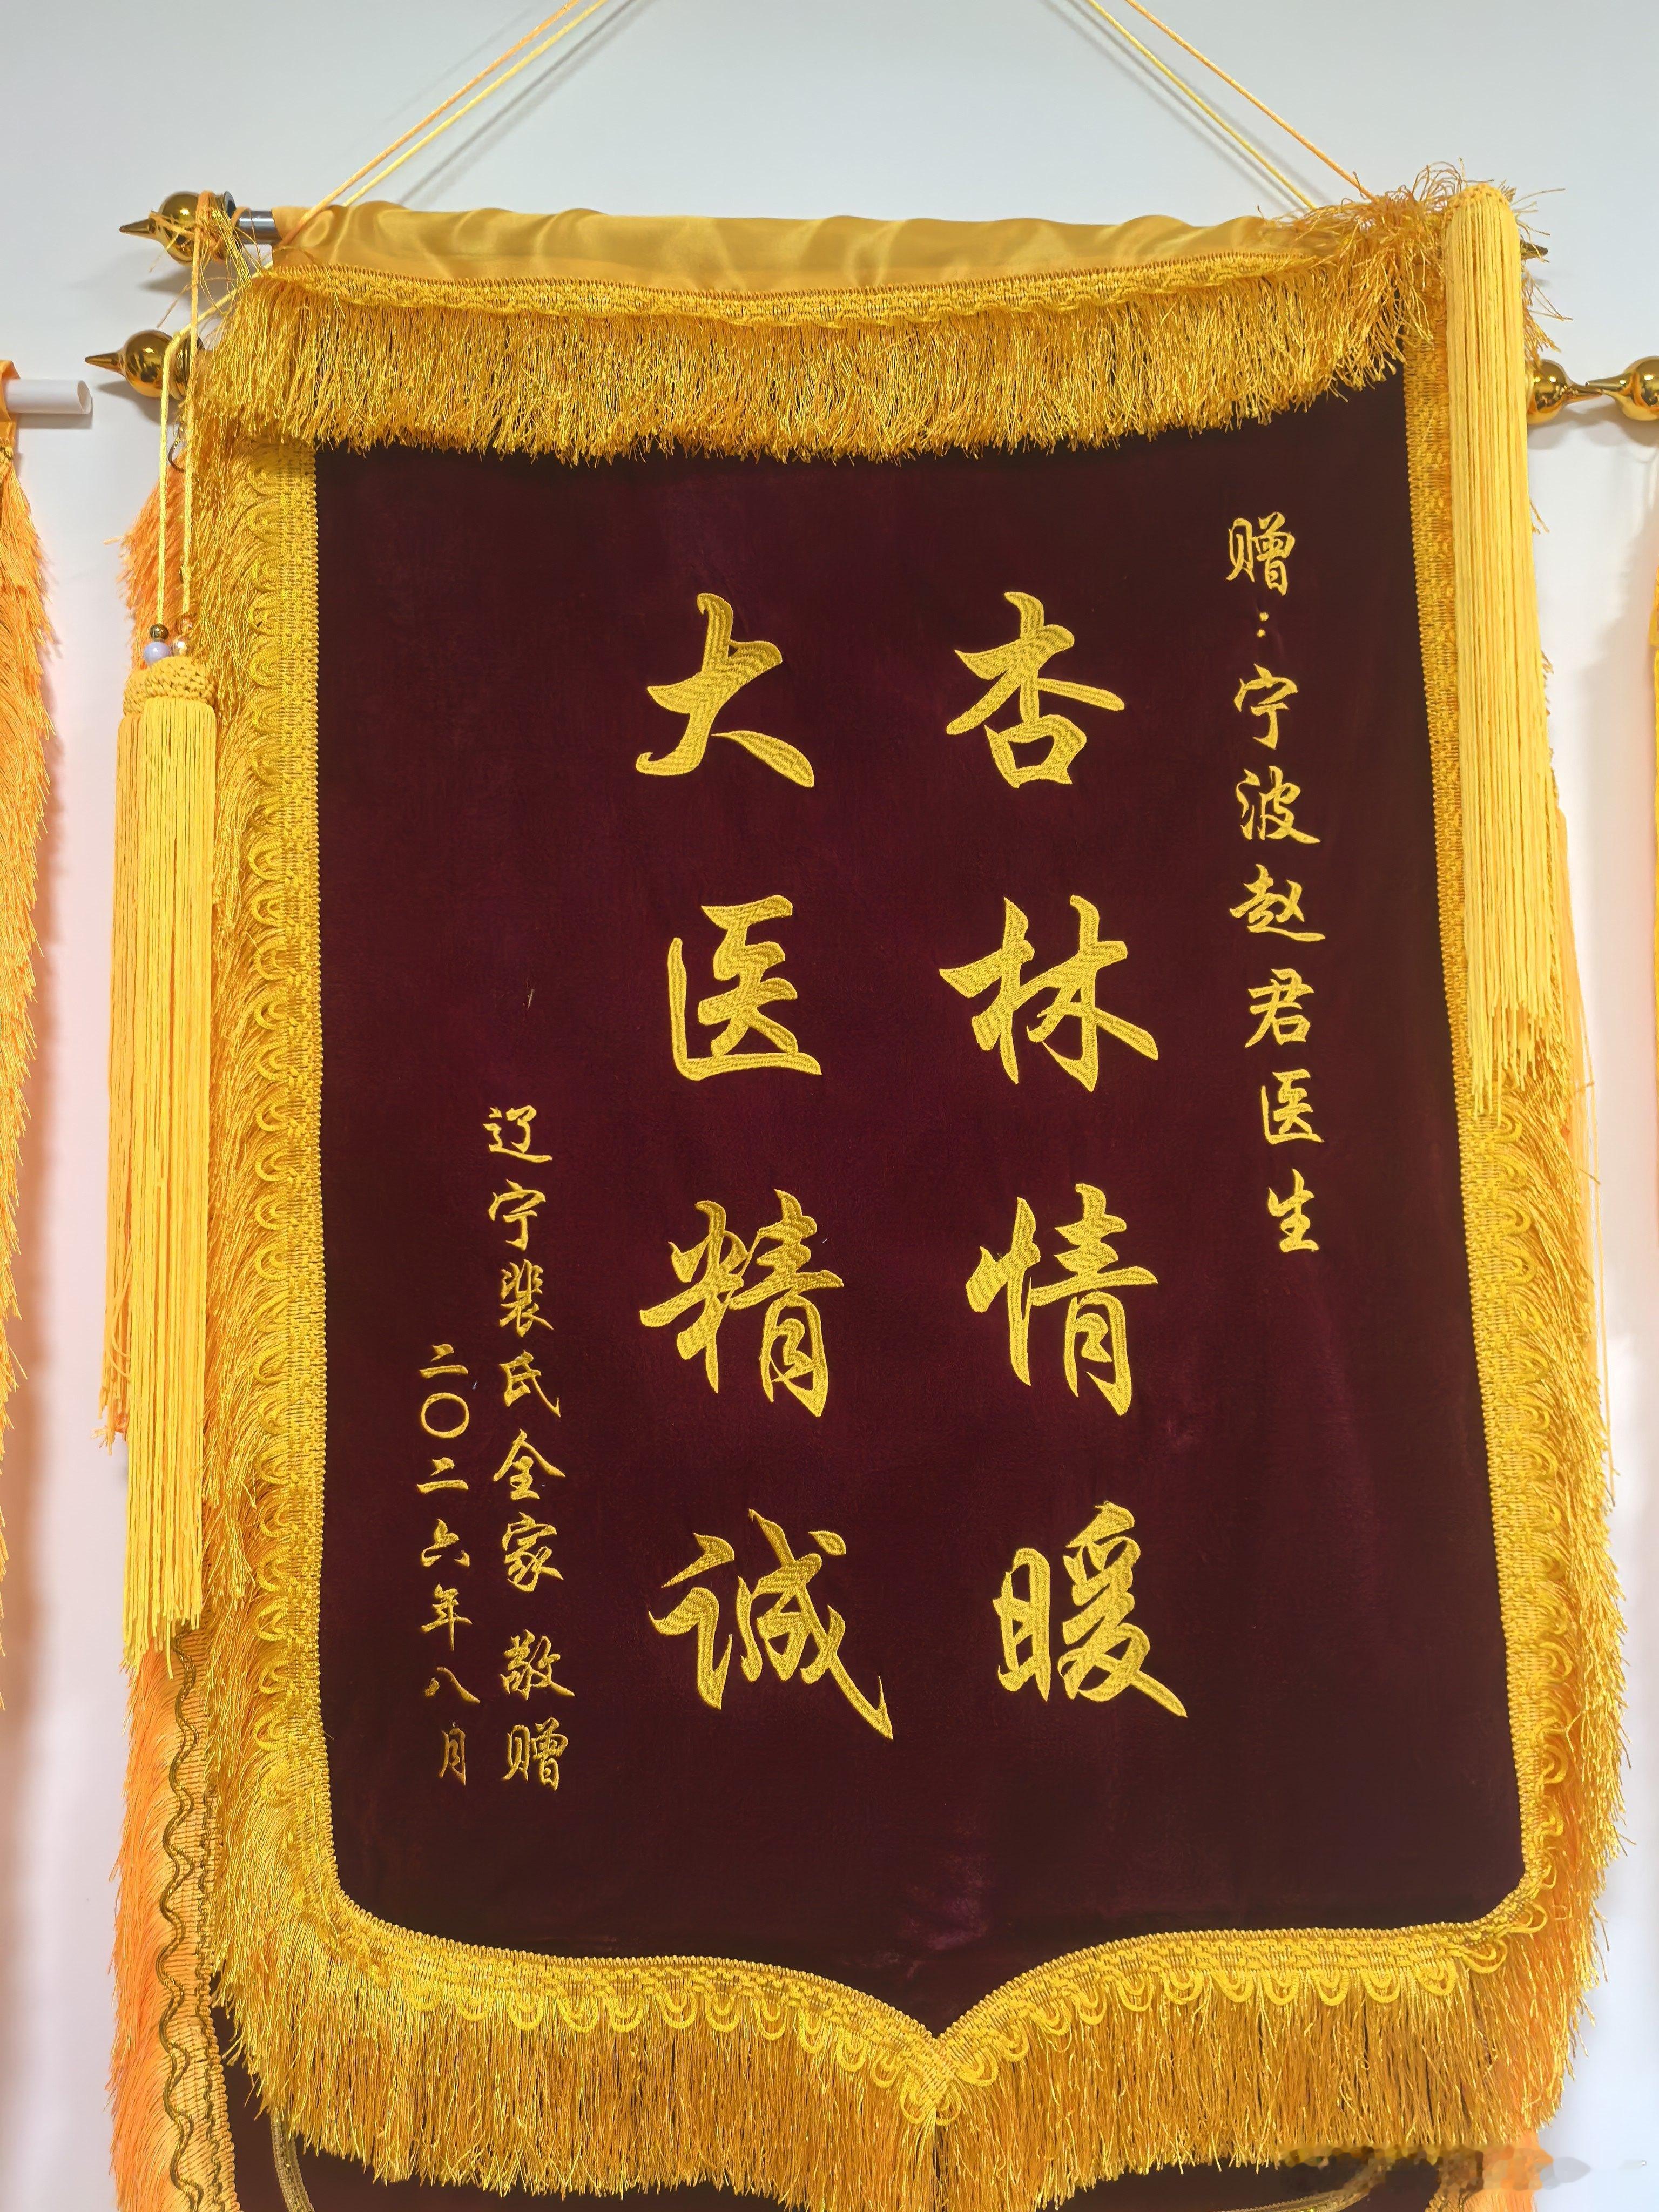 赠：宁波赵君医生
杏林情暖
大医精诚
辽宁裴氏全家 敬赠
二〇二六年八月